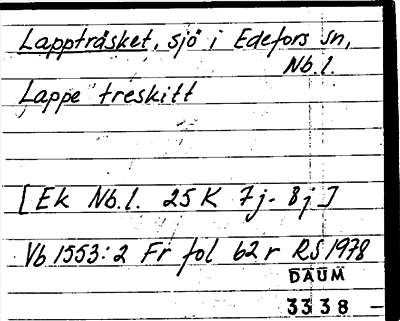 Lappträsket, sjö i Edefors sn,
Nb.l.
Lappe treskitt
[Ek Nb.l. 25 K 7j-8j]
Vb 1553:2 Fr fol 62r RS 1978
DAUM
3338